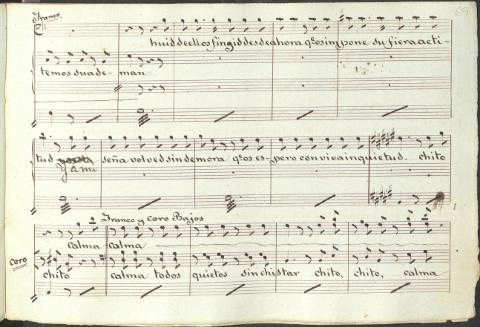 Franco.
69
huid de ellos fingiddes de ahora q.e os impone su fiera acti-
temos su ade- man
tud
y a mi seña volved sin demora q.e os es- pero con viva inquietud. chito
Franco y Coro Bajos
calma calma
Coro
chito calma todos quietos sin chistar chito, chito, calma